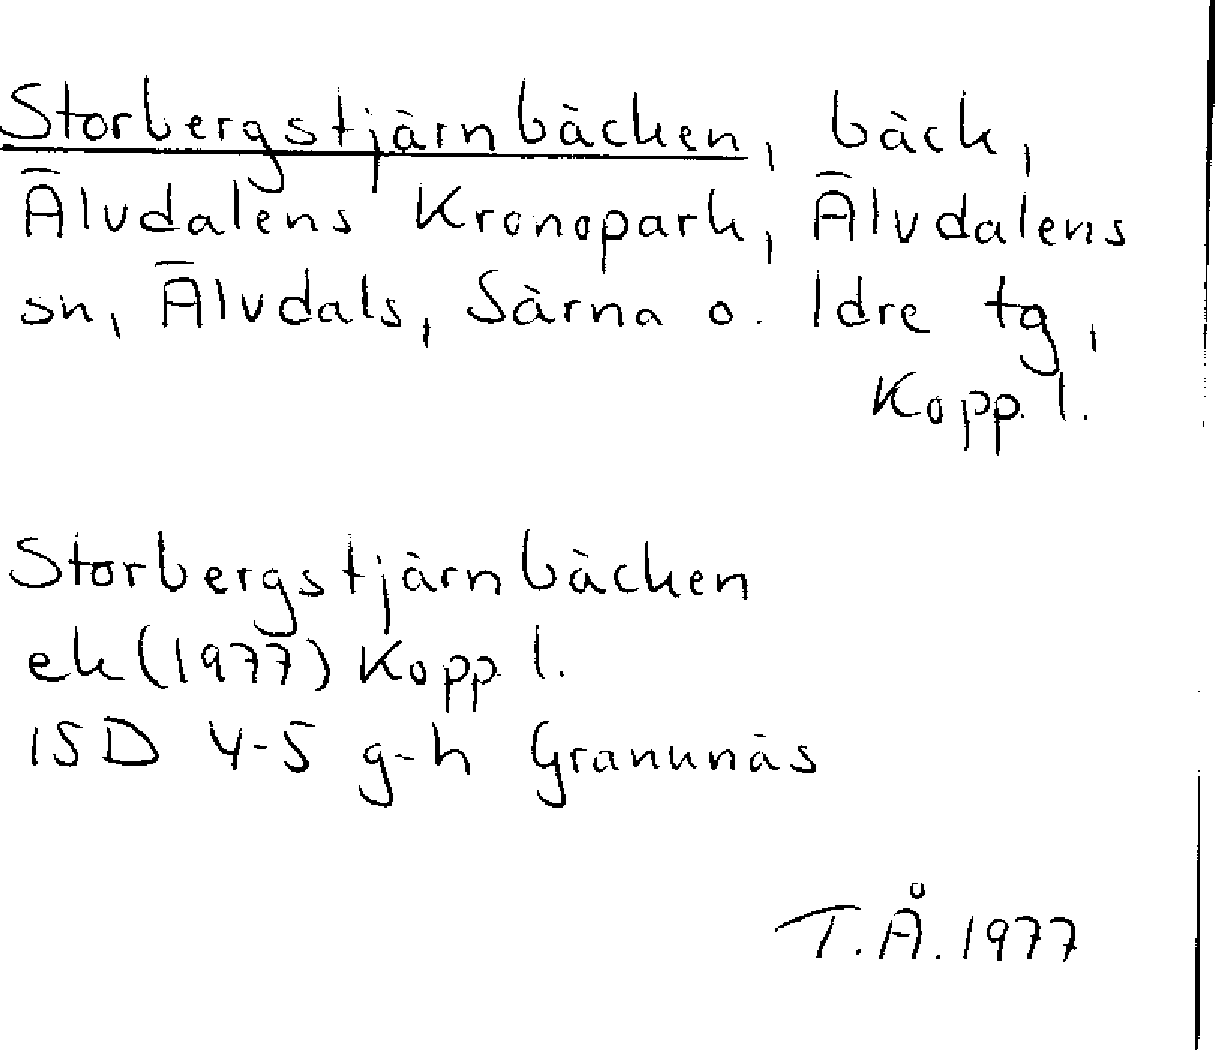 Storbergstjärnbäcken, bäck,
Älvdalens Kronopark, Älvdalens
sn, Älvdals, Särna o. Idre tg,
Kopp. l.
Storbergstjärnbäcken
ek (1977) Kopp. l.
15D 4-5 g-h Granunäs
T.Å. 1977